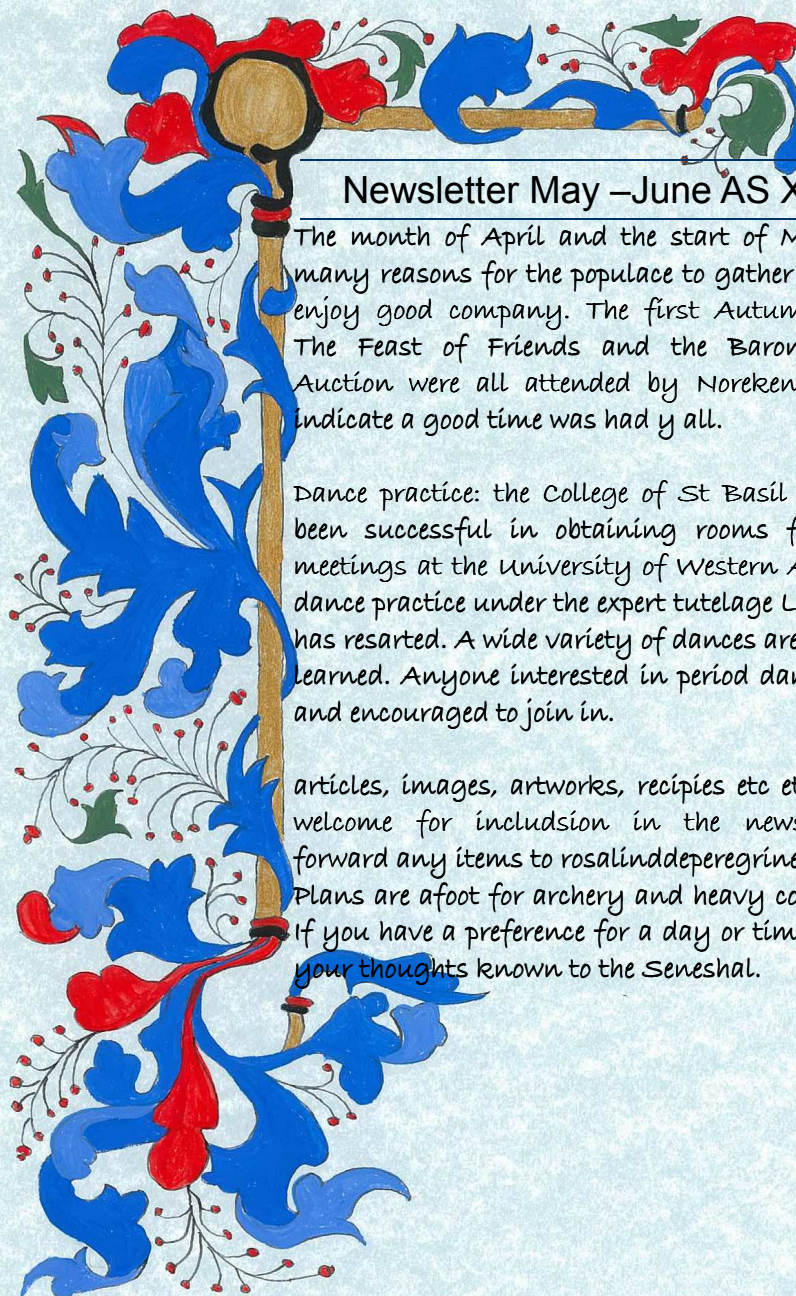 Newsletter May –June AS X
The month of April and the start of M
many reasons for the populace to gather
enjoy good company. The first Autum
The Feast of Friends and the Baron
Auction were all attended by Noreken
indicate a good time was had y all.
Dance practice: the College of St Basil
been successful in obtaining rooms f
meetings at the University of Western A
dance practice under the expert tutelage L
has resarted. A wide variety of dances are
learned. Anyone interested in period dan
and encouraged to join in.
articles, images, artworks, recipies etc et
welcome for includsion in the news
forward any items to rosalinddeperegrine
Plans are afoot for archery and heavy co
If you have a preference for a day or tim
your thoughts known to the Seneshal.